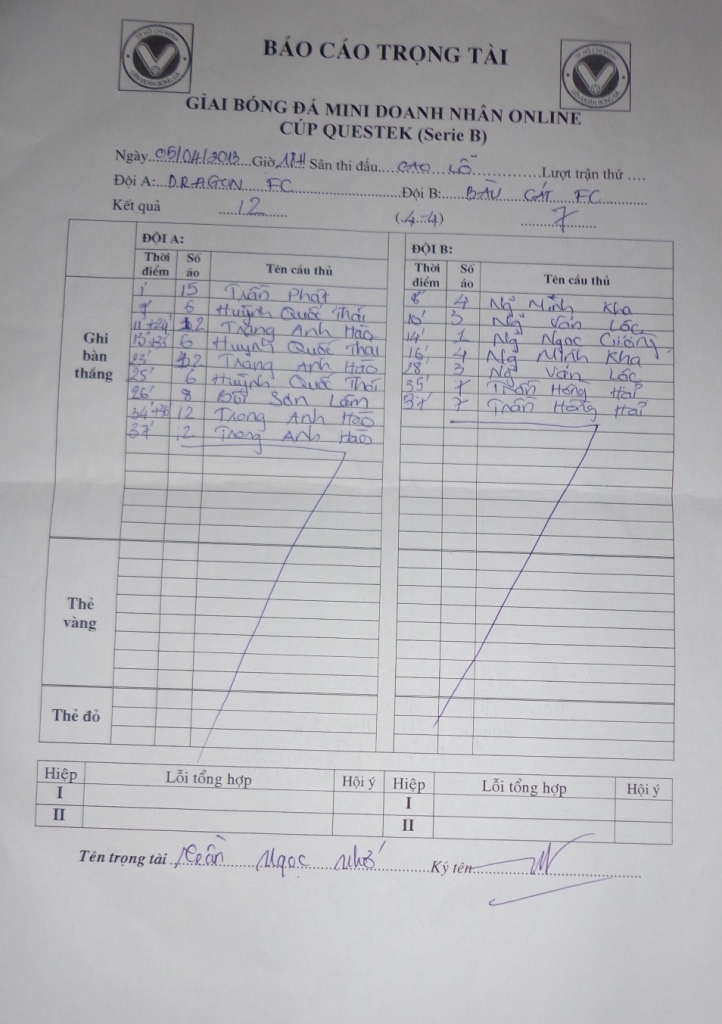 BÁO CÁO TRỌNG TÀI
GIẢI BÓNG ĐÁ MINI DOANH NHÂN ONLINE
CÚP QUESTEK (Serie B)
Ngày 05/04/2013 Giờ 18H Sân thi đấu CAO LỖ Lượt trận thứ ....
Đội A: DRAGON FC Đội B: BÀU CÁT FC
Kết quả 12 (4-4) 7
ĐỘI A: ĐỘI B:
Thời điểm Số áo Tên cầu thủ Thời điểm Số áo Tên cầu thủ
Ghi bàn thắng
1' 15 Trần Phát 8' 4 Ng Minh Kha
7' 6 Huỳnh Quốc Thái 10' 3 Ng Văn Lốc
12 Trang Anh Hào 14' 1 Ng Ngọc Cường
6 Huỳnh Quốc Thái 16' 4 Ng Minh Kha
23' 12 Trang Anh Hào 28' 3 Ng Văn Lốc
25' 6 Huỳnh Quốc Thái 35' 7 Trần Hồng Hải
26' 8 Bùi Sơn Lâm 37' 7 Trần Hồng Hải
12 Trong Anh Hào
37' 12 Trong Anh Hào
Thẻ vàng
Thẻ đỏ
Hiệp Lỗi tổng hợp Hội ý Hiệp Lỗi tổng hợp Hội ý
I I
II II
Tên trọng tài Trần Ngọc Nhớ Ký tên